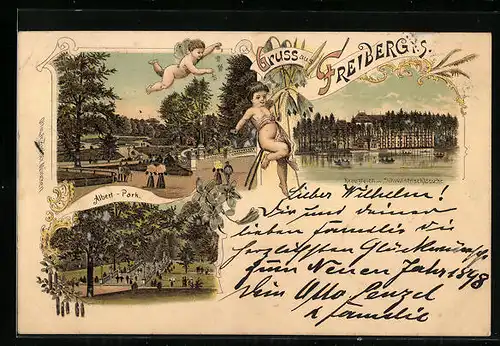 Gruss aus FREIBERG i. S.
Kreuzteich - Schwanenschlösschen
Albert - Park.
Lieber Wilhelm!
Dir und deiner
lieben Familie die
herzlichsten Glückwünsche
zum Neuen Jahr 1898
Dein Otto
& Familie